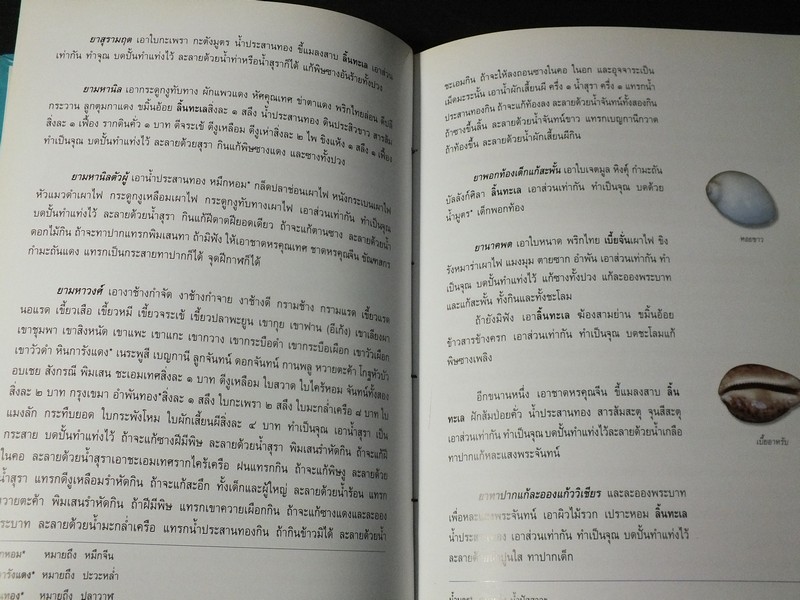 ยาสุรามฤต เอาใบกะเพรา กะตังมูตร น้ำประสานทอง ขี้แมลงสาบ ลิ้นทะเล เอาส่วน
เท่ากัน ทำจุณ บดปั้นทำแท่งไว้ ละลายด้วยน้ำท่าหรือน้ำสุราก็ได้ แก้พิษซางอันร้ายทั้งปวง
ยามหานิล เอากระดูกงูทับทาง ผักแพวแดง หัศคุณเทศ ข่าตาแดง พริกไทยล่อน ดีปลี
กระวาน ลูกตุมกาแดง ขมิ้นอ้อย ลิ้นทะเลสิ่งละ ๑ สลึง น้ำประสานทอง ดินประสิวขาว สารส้ม
สิ่งละ ๑ เฟื้อง รากดินคั่ว ๑ บาท ดีจระเข้ ดีงูเหลือม ดีงูเห่าสิ่งละ ๒ ไพ ขิงแห้ง ๑ สลึง ๑ เฟื้อง
ทำเป็นจุณ บดปั้นทำแท่งไว้ ละลายด้วยสุรา กินแก้พิษซางแดง และซางทั้งปวง
ยามหานิลตัวผู้ เอาน้ำประสานทอง หมึกหอม* กล็ดปลาช่อนเผาไฟ หนังกระเบนเผาไฟ
หัวแมวดำเผาไฟ กระดูกงูเหลือมเผาไฟ กระดูกงูทับทางเผาไฟ เอาส่วนเท่ากัน ทำเป็นจุณ
บดปั้นทำแท่งไว้ ละลายด้วยน้ำสุรา กินแก้ฝีดาดฝียอดเดียว ถ้าจะแก้ตานซาง ละลายด้วยน้ำ
ดอกไม้กิน ถ้าจะทาปากแทรกพิมเสนทา ถ้ามิฟัง ให้เอาชาดหรคุณเทศ ชาดหรคุณจีน ขัณฑสกร
กำมะถันแดง แทรกเป็นกระสายทาปากก็ได้ จุดฝีกาฬก็ได้
ยามหาวงศ์ เอางาช้างกำจัด งาช้างกำจาย งาช้างดี กรามช้าง กรามแรด เขี้ยวแรด
นอแรด เขี้ยวเสือ เขี้ยวหมี เขี้ยวจระเข้ เขี้ยวปลาพะยูน เขากุย เขาฟาน (อีเก้ง) เขาเลียงผา
เขาชุมพา เขาสิงหนัด เขาแพะ เขาแกะ เขากวาง เขากระบือดำ เขากระบือเผือก เขาวัวเผือก
เขาวัวดำ หินการังแดง* เนระพูสี เบญกานี ลูกจันทน์ ดอกจันทน์ กานพลู หวายตะค้า โกฐหัวบัว
อบเชย สังกรณี พิมเสน ชะเอมเทศสิ่งละ ๑ บาท ดีงูเหลือม ใบสวาด ใบไคร้หอม จันทน์ทั้งสอง
สิ่งละ ๒ บาท กรุงเขมา อำพันทอง*สิ่งละ ๑ สลึง ใบกะเพรา ๒ สลึง ใบมะกล่ำเครือ ๘ บาท ใบ
แมงลัก กระทืบยอด ใบกระพังโหม ใบผักเสี้ยนผีสิ่งละ ๔ บาท ทำเป็นจุณ เอาน้ำสุรา เป็น
กระสาย บดปั้นทำแท่งไว้ ถ้าจะแก้ซางฝีมีพิษ ละลายด้วยน้ำสุรา พิมเสนรำหัดกิน ถ้าจะแก้ฝี
ในคอ ละลายด้วยน้ำสุราเอาชะเอมเทศรากไคร้เครือ ฝนแทรกกิน ถ้าจะแก้พิษงู ละลายด้วย
น้ำสุรา แทรกดีงูเหลือมรำหัดกิน ถ้าจะแก้สะอึก ทั้งเด็กและผู้ใหญ่ ละลายด้วยน้ำร้อน แทรก
วายตะค้า พิมเสนรำหัดกิน ถ้าฝีมีพิษ แทรกเขาควายเผือกกิน ถ้าจะแก้ซางแดงและละออง
ระบาท ละลายด้วยน้ำมะกล่ำเครือ แทรกน้ำประสานทองกิน ถ้ากินข้าวมิได้ ละลายด้วยน้ำ
กหอม* หมายถึง หมึกจีน
ารังแดง* หมายถึง ปะวะหล่ำ
ทอง* หมายถึง ปลาวาฬ
ชะเอมกิน ถ้าจะให้ลงถอนซางในคอ ในอก และอุจจาระเป็น
เม็ดมะระนั้น เอาน้ำผักเสี้ยนผี ครึ่ง ๑ น้ำสุรา ครึ่ง ๑ แทรกน้ำ
ประสานทองกิน ถ้าจะแก้ท้องลง ละลายด้วยน้ำจันทน์ทั้งสองกิน
ถ้าซางขึ้นลิ้น ละลายด้วยน้ำจันทน์ขาว แทรกเบญกานีกวาด
ถ้าท้องขึ้น ละลายด้วยน้ำผักเสี้ยนผีกิน
ยาพอกท้องเด็กแก้สะพั้น เอาใบเจตมูล หิงคุ์ กำมะถัน
บัลลังก์ศิลา ลิ้นทะเล เอาส่วนเท่ากัน ทำเป็นจุณ บดด้วย
น้ำมูตร* เด็กพอกท้อง
ยานาคพด เอาใบหนาด พริกไทย เบี้ยจั่นเผาไฟ ขิง
รังหมาร่าเผาไฟ แมงมุม ตายซาก อำพัน เอาส่วนเท่ากัน ทำ
เป็นจุณ บดปั้นทำแท่งไว้ แก้ซางทั้งปวง แก้ละอองพระบาท
และแก้สะพั้น ทั้งกินและทั้งชะโลม
ถ้ายังมิฟัง เอาลิ้นทะเล ฆ้องสามย่าน ขมิ้นอ้อย
ข้าวสารข้างครก เอาส่วนเท่ากัน ทำเป็นจุณ บดชะโลมแก้
พิษซางเพลิง
อีกขนานหนึ่ง เอาชาดหรคุณจีน ขี้แมลงสาบ ลิ้น
ทะเล ผักส้มป่อยคั่ว น้ำประสานทอง สารส้มสะตุ จุนสีสะตุ
เอาส่วนเท่ากัน ทำเป็นจุณ บดปั้นทำแท่งไว้ละลายด้วยน้ำเกลือ
ทาปากแก้หละแสงพระจันทน์
ยาทาปากแก้ละอองแก้ววิเชียร และละอองพระบาท
เพื่อหละ พระจันทร์ เอาผิวไม้รวก เปราะหอม ลิ้นทะเล
น้ำประ แดง เอาส่วนเท่ากัน ทำเป็นจุณ บดปั้นทำแท่งไว้
ละลายด้ ปูนใส ทาปากเด็ก
หอยขาว
เบี้ยอาหรับ